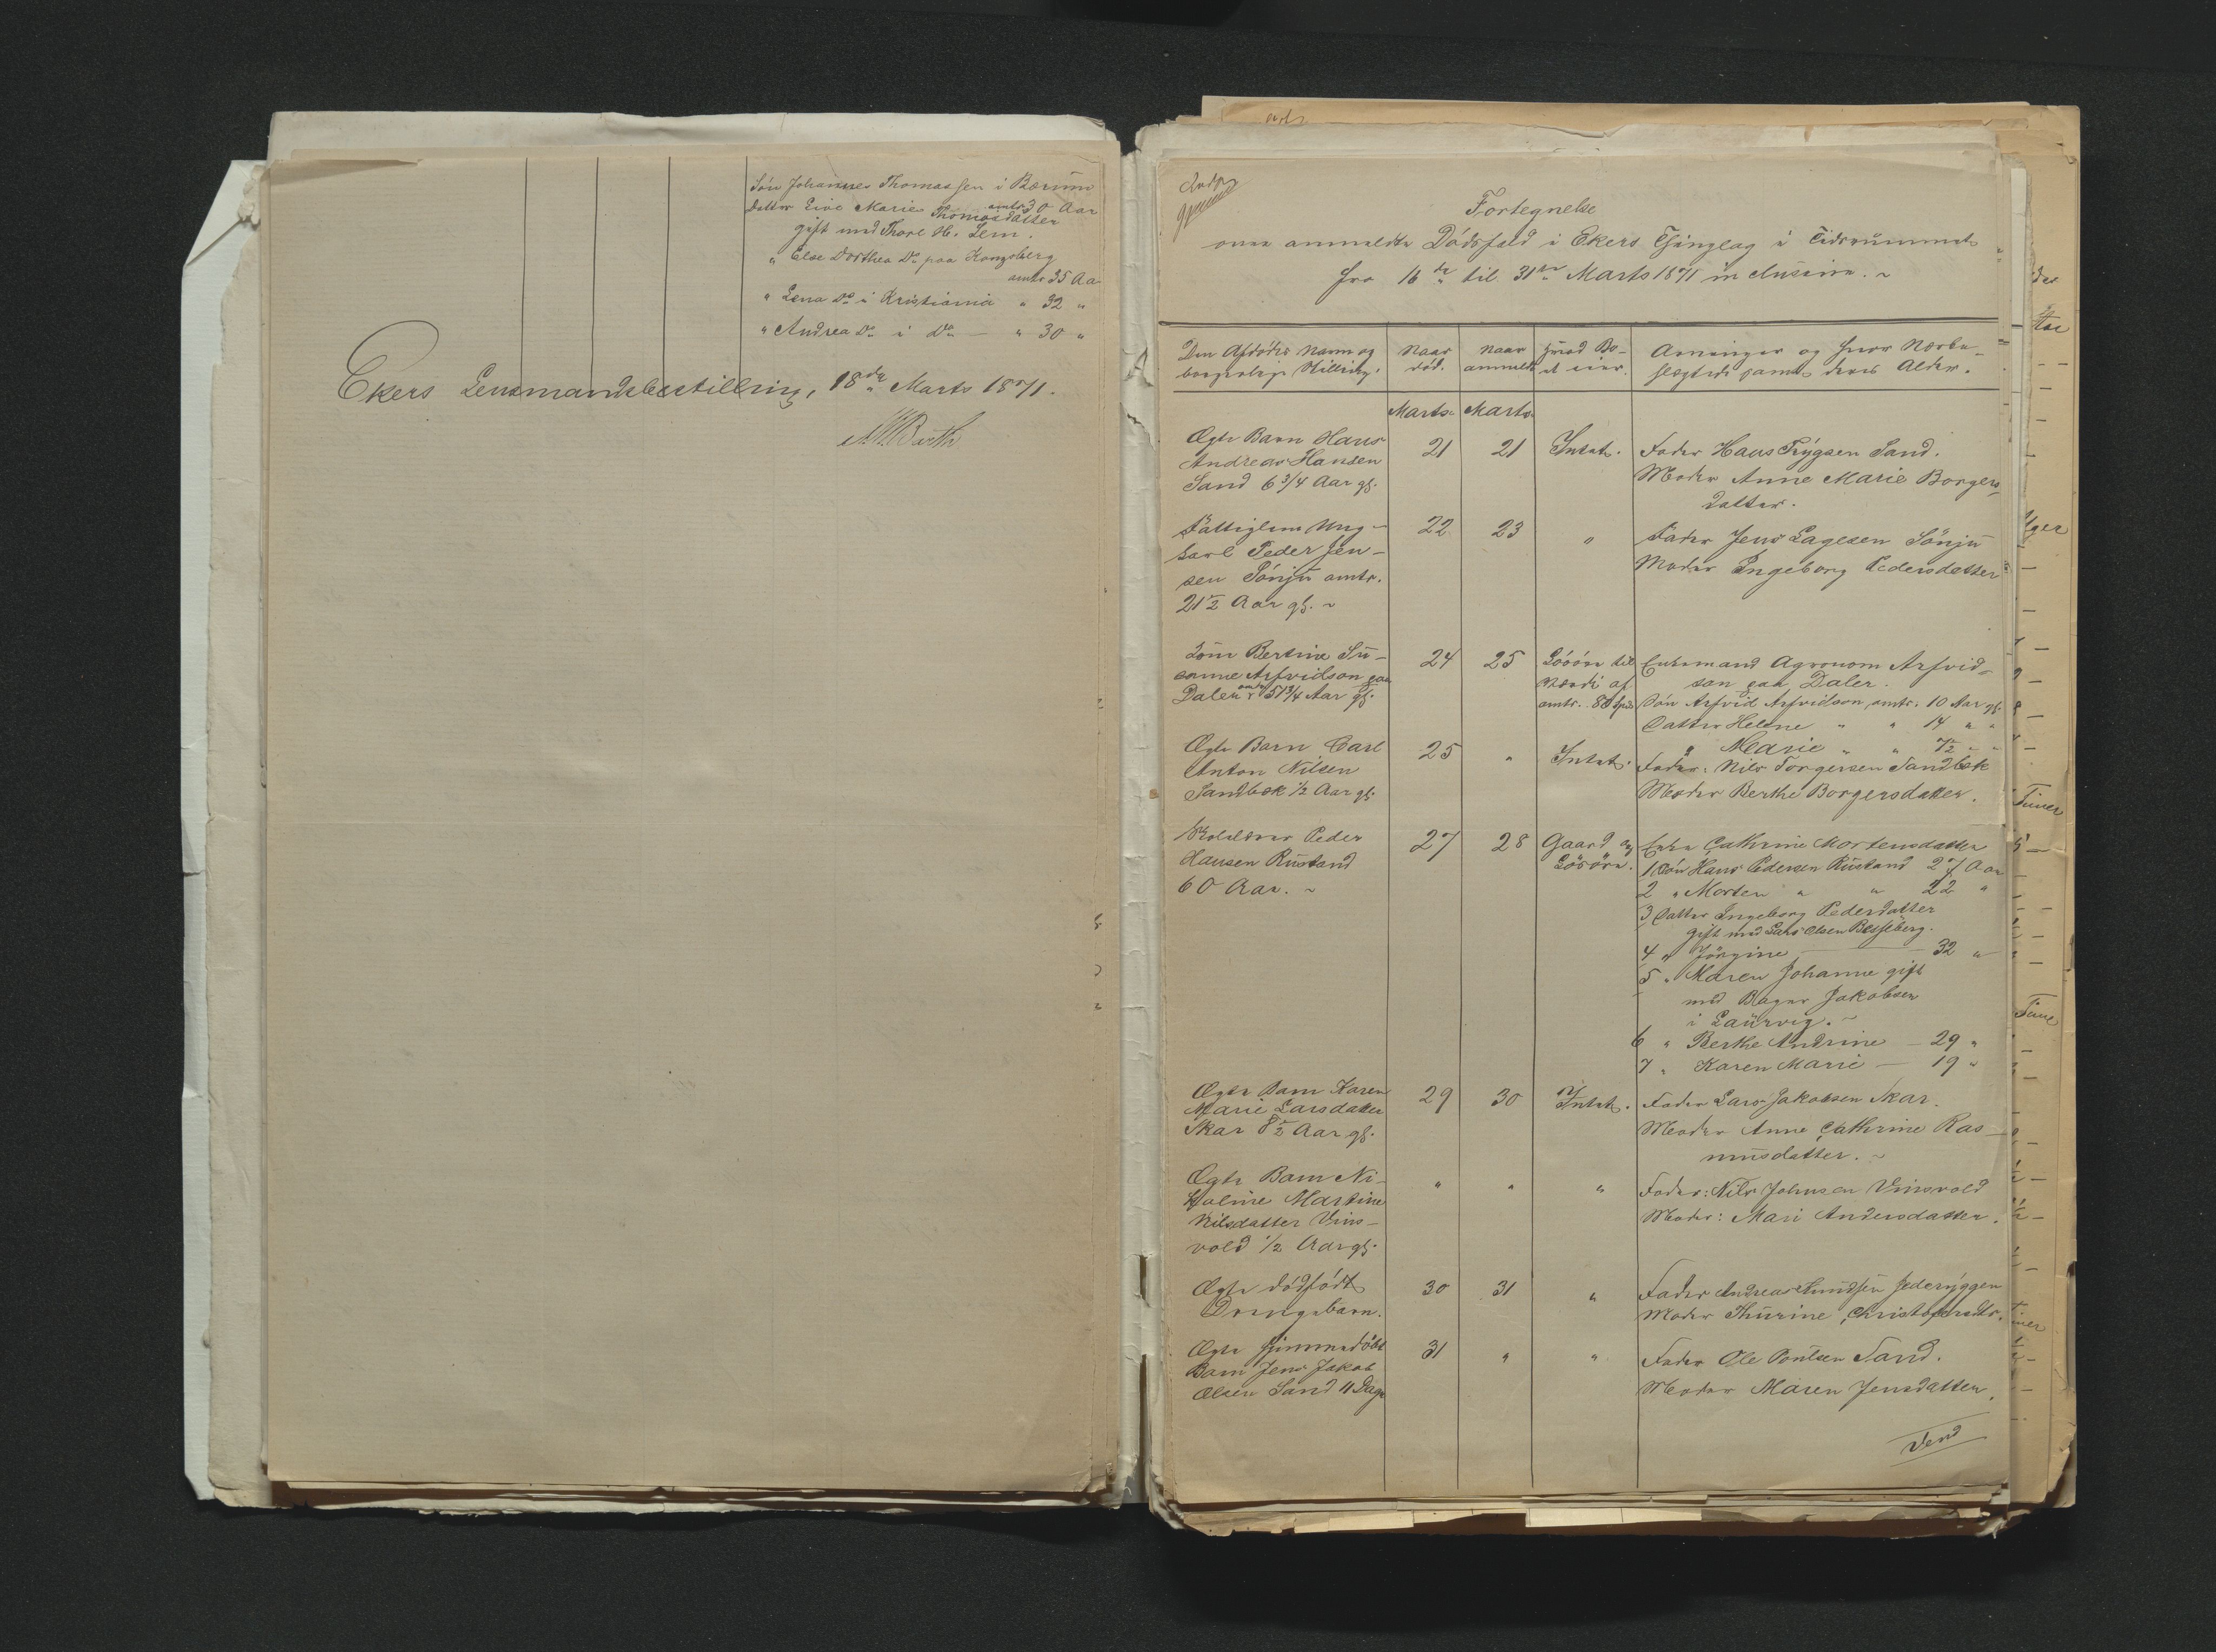 Søn Johannes Thomassen i Bærum
amtr 30 Aar
Datter Live Marie Thomasdatter
gift med Thore H. Lem.
" Else Dorthea Do paa Kongsberg
amtr 35 Aar
" Lena Do i Kristiania " 32 "
" Andrea Do i Do — " 30 "
Ekers Lensmandsbestilling, 18de Marts 1871.
Barth
Fortegnelse
over anmeldte Dødsfald i Ekers Thinglag i Tidsrummet
fra 16de til 31te Marts 1871 inclusive. ~
Den Afdødes Navn og
borgerlige Stilling.
Naar
død.
Naar
anmeldt
Hvad Bo-
et eier.
Arvinger og hvor Nærbe-
slægtede samt deres Alder.
Marts Marts
Ægte Barn Hans
Andreas Hansen
Sand 6 3/4 Aar gl.
21 21 Intet.
Fader Hans Trygsen Sand.
Moder Anne Marie Borgers-
datter.
Fattiglem Ung-
karl Peder Jen-
sen Sönju amtr.
21 1/2 Aar gl. ~
22 23 "
Fader Jens Lagesen Sönju
Moder Ingeborg Pedersdatter
Kone Bertine Su-
sanne Arfvidson paa
Daler amtr 51 3/4 Aar gl.
24 25 Løsøre til
Værdi af
amtr. 80 Spd
Enkemand Agronom Arfvid-
son paa Daler.
Søn Arfvid Arfvidson amtr. 10 Aar gl.
Datter Helene " " 14 " "
" Marie " " 7 1/2 " "
Ægte Barn Carl
Anton Nilsen
Sandbek 1/2 Aar gl.
25 " Intet.
Fader: Nils Torgersen Sandbek
Moder Berthe Borgersdatter.
Selveier Peder
Hansen Rustand
60 Aar. ~
27 28 Gaard og
Løsøre.
Enke Cathrine Mortensdatter
1 Søn Hans Pedersen Rustand 27 Aar
2 " Morten " " 22 "
3 Datter Ingeborg Pedersdatter
gift med Lars Olsen Besseberg.
4 " Jörgine — 32 "
5 " Maren Johanne gift
med Bager Jakobsen
i Laurvig. ~
6 " Berthe Andrine — 29 "
7 " Karen Marie — 19 "
Ægte Barn Karen
Marie Larsdatter
Skar 8 1/2 Aar gl.
29 30 Intet.
Fader Lars Jakobsen Skar.
Moder Anne Cathrine Ras-
musdatter. ~
Ægte Barn Ni-
koline Martine
Nilsdatter Vins-
vold 1/2 Aar gl.
" " "
Fader: Nils Johnsen Vinsvold
Moder: Mari Andersdatter.
Ægte dødfødt
Drengebarn.
30 31 "
Fader Andreas Knudsen Jederyggen
Moder Thurine Christophersdtr.
Ægte hjemmedøbt
Barn Jens Jakob
Olsen Sand 11 Dage
31 " "
Fader Ole Poulsen Sand.
Moder Maren Jensdatter.
Vend